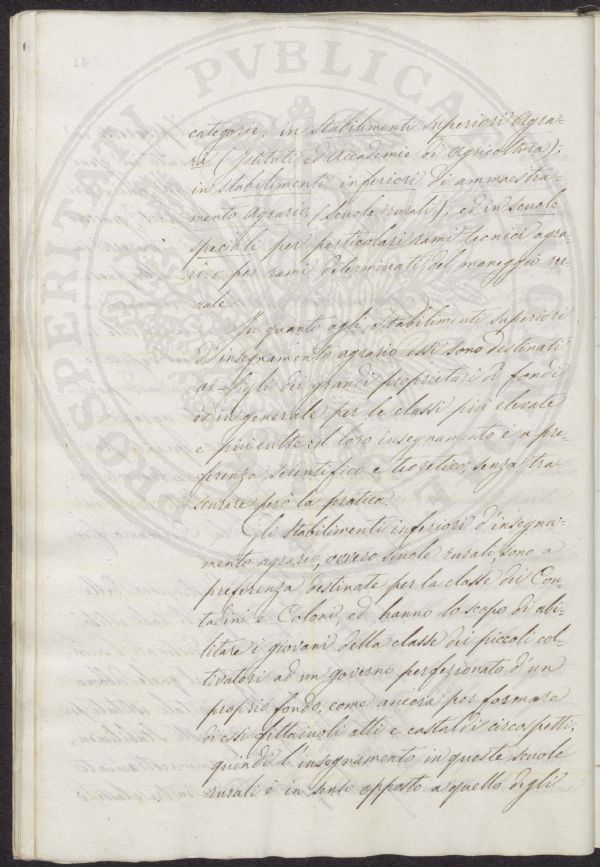 PROSPERITATI PVBLICAE
categorie; in stabilimenti superiori agra-
ri (Istituti ed Accademie di Agricoltura);
in stabilimenti inferiori di ammaestra-
mento agrario (scuole rurali); ed in scuole
speciali per particolari rami tecnici agra-
ri e per rami determinati del maneggio ru-
rale.
In quanto agli stabilimenti superiori
d'insegnamento agrario essi sono destinati
ai figli dei grandi proprietari di fondi
ed in generale per le classi più elevate
e più culte: il loro insegnamento è a pre-
ferenza scientifico e teoretico, senza tra-
scurare però la pratica.
Gli stabilimenti inferiori d'insegna-
mento agrario, ovvero scuole rurali, sono a
preferenza destinate per la classe dei Con-
tadini e Coloni, ed hanno lo scopo di abi-
litare i giovani della classe dei piccoli col-
tivatori ad un governo perfezionato d'un
proprio fondo, come ancora per formare
di essi fittaiuoli atti e castaldi circospetti;
quindi l'insegnamento in queste scuole
rurali è in senso opposto a quello degli